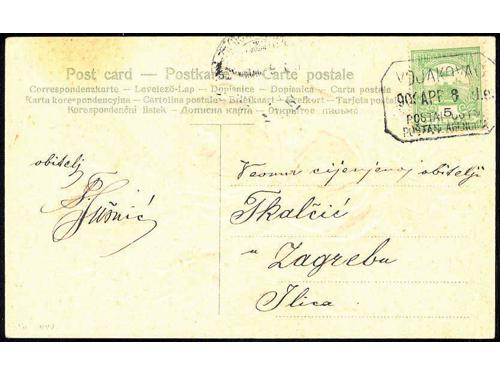 Post card – Postkarte – Carte postale
Correspondenzkarte – Levelező-Lap – Dopisnice – Dopisnica – Carta postala
Karta korespondencyjna – Cartolina postale – Briefkaart – Brefkort – Tarjeta postal
Korespondenční listek – Дописна карта – Открытое письмо
VOJAKOVAC
APR 8
5
obitelj
Veoma cijenjenoj obitelji
Tkalčić
u
Zagrebu
Ilica